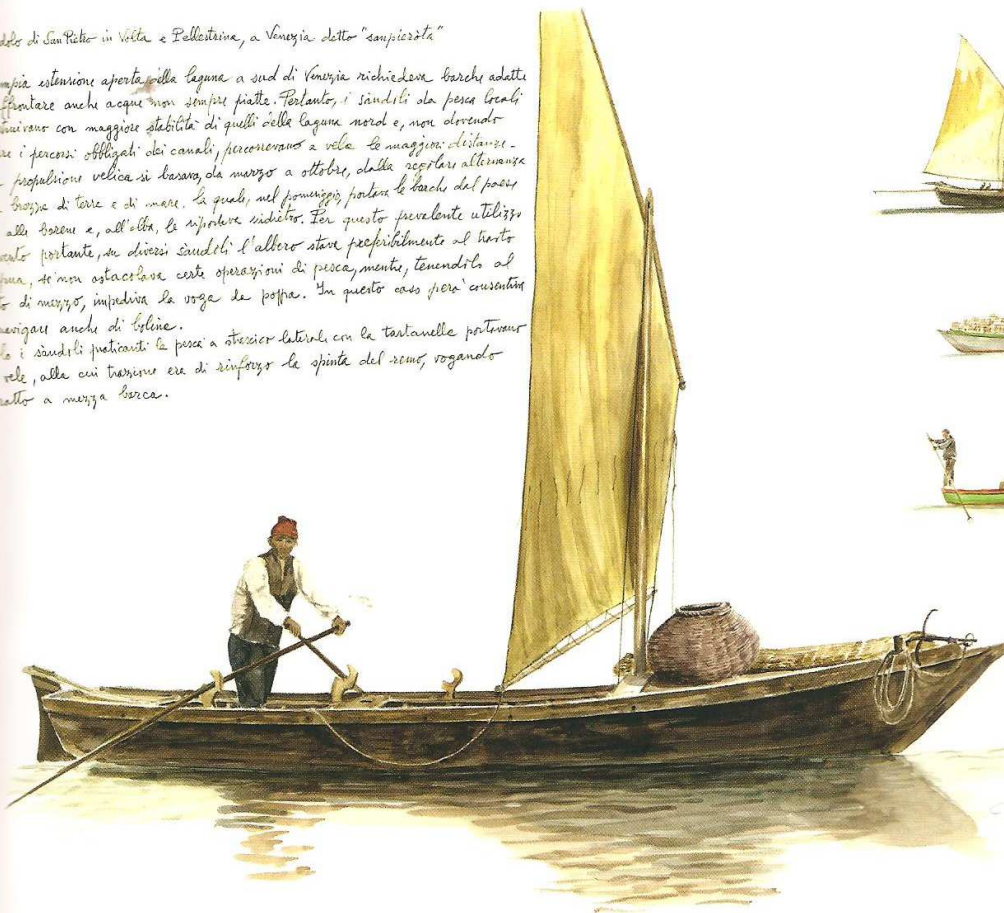 dolo di San Pietro in Volta e Pellestrina, a Venezia detto "sanpieròta"
mpia estensione aperta della laguna a sud di Venezia richiedeva barche adatte
ffrontare anche acque non sempre piatte. Pertanto, i sàndoli da pesca locali
truivano con maggiore stabilità di quelli della laguna nord e, non dovendo
re i percorsi obbligati dei canali, percorrevano a vela le maggiori distanze.
propulsione velica si basava, da marzo a ottobre, dalla regolare alternanza
brezza di terra e di mare, la quale, nel pomeriggio, portava le barche dal paese
alle barene e, all'alba, le riportava indietro. Per questo prevalente utilizzo
vento portante, su diversi sàndoli l'albero stava preferibilmente al trasto
prua, se non ostacolava certe operazioni di pesca, mentre, tenendolo al
to di mezzo, impediva la voga da poppa. In questo caso però consentiva
navigare anche di bolina.
lo i sàndoli praticanti la pesca a strascico laterale con la tartanella portavano
vele, alla cui trazione era di rinforzo la spinta del remo, vogando
ratto a mezza barca.